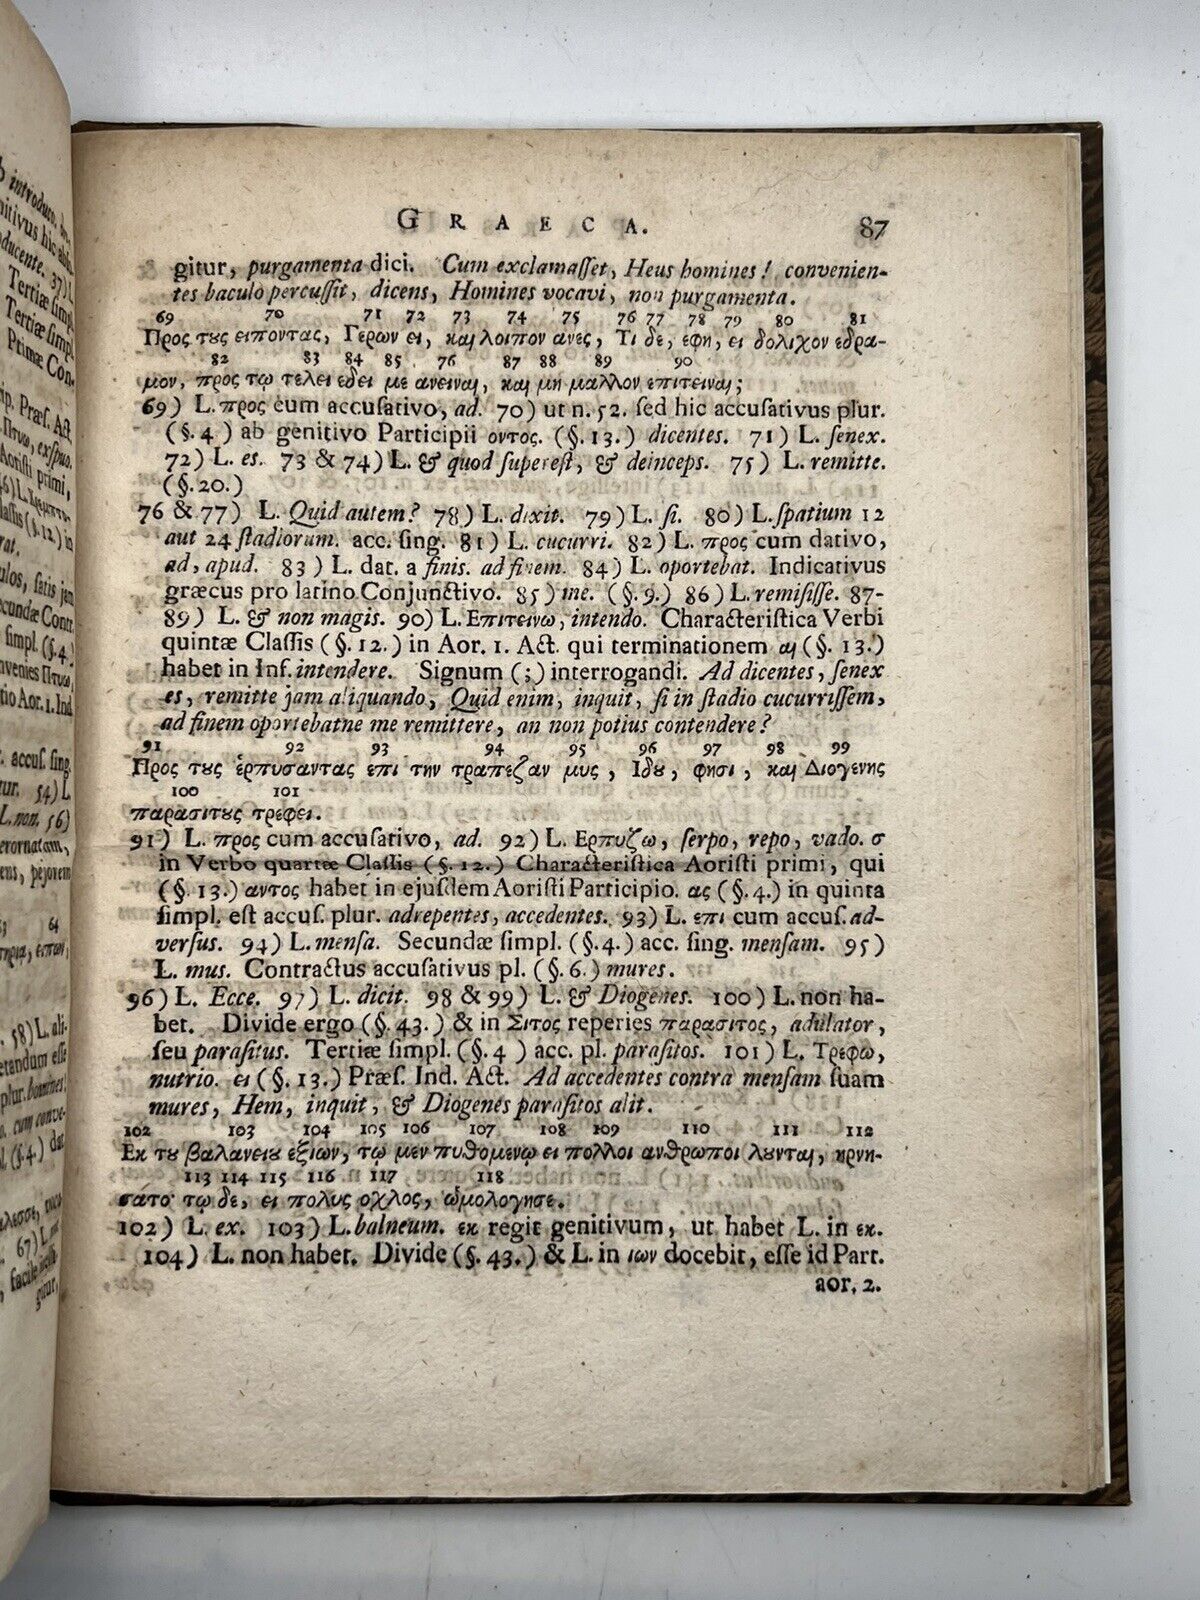 GRAECA. 87
gitur, purgamenta dici. Cum exclamaſſet, Heus homines! convenien-
tes baculo percuſſit, dicens, Homines vocavi, non purgamenta.
69 70 71 72 73 74 75 76 77 78 79 80 81
Προς τȣς ειποντας, Γερων ει, και λοιπον ανες, Τι δε, εφη, ει δολιχον εδρα-
82 83 84 85 76 87 88 89 90
μον, προς τῳ τελει εδει με ανειναι, και μη μαλλον επιτειναι;
69) L. προς cum accuſativo, ad. 70) ut n. 52. ſed hic accuſativus plur.
(§. 4) ab genitivo Participii οντος. (§. 13.) dicentes. 71) L. ſenex.
72) L. es. 73 & 74) L. & quod ſupereſt, & deinceps. 75) L. remitte.
(§. 20.)
76 & 77) L. Quid autem? 78) L. dixit. 79) L. ſi. 80) L. ſpatium 12
aut 24 ſtadiorum. acc. ſing. 81) L. cucurri. 82) L. προς cum dativo,
ad, apud. 83) L. dat. a finis. ad finem. 84) L. oportebat. Indicativus
græcus pro latino Conjunctivo. 85) me. (§. 9.) 86) L. remiſiſſe. 87-
89) L. & non magis. 90) L. Επιτεινω, intendo. Characteriſtica Verbi
quintæ Claſſis (§. 12.) in Aor. 1. Act. qui terminationem αι (§. 13.)
habet in Inf. intendere. Signum (;) interrogandi. Ad dicentes, ſenex
es, remitte jam aliquando, Quid enim, inquit, ſi in ſtadio cucurriſſem,
ad finem oportebatne me remittere, an non potius contendere?
91 92 93 94 95 96 97 98 99
Προς τȣς ἑρπυσαντας επι την τραπεζαν μυς, Ιδȣ, φησι, και Διογενης
100 101
παρασιτȣς τρεφει.
91) L. προς cum accuſativo, ad. 92) L. Ερπυζω, ſerpo, repo, vado. σ
in Verbo quartæ Claſſis (§. 12.) Characteriſtica Aoriſti primi, qui
(§. 13.) αντος habet in ejuſdem Aoriſti Participio. ας (§. 4.) in quinta
ſimpl. eſt accuſ. plur. adrepentes, accedentes. 93) L. επι cum accuſ. ad-
verſus. 94) L. menſa. Secundæ ſimpl. (§. 4.) acc. ſing. menſam. 95)
L. mus. Contractus accuſativus pl. (§. 6.) mures.
96) L. Ecce. 97) L. dicit. 98 & 99) L. & Diogenes. 100) L. non ha-
bet. Divide ergo (§. 43.) & in Σιτος reperies παρασιτος, adulator,
ſeu paraſitus. Tertiæ ſimpl. (§. 4) acc. pl. paraſitos. 101) L. Τρεφω,
nutrio. ει (§. 13.) Præſ. Ind. Act. Ad accedentes contra menſam ſuam
mures, Hem, inquit, & Diogenes paraſitos alit.
102 103 104 105 106 107 108 109 110 111 112
Εκ τȣ βαλανειȣ εξιων, τῳ μεν πυθομενῳ ει πολλοι ανθρωποι λȣνται, ηρνη-
113 114 115 116 117 118
σατο τῳ δε, ει πολυς οχλος, ὡμολογησε.
102) L. ex. 103) L. balneum. εκ regit genitivum, ut habet L. in εκ.
104) L. non habet. Divide (§. 43.) & L. in ιων docebit, eſſe id Part.
aor. 2.